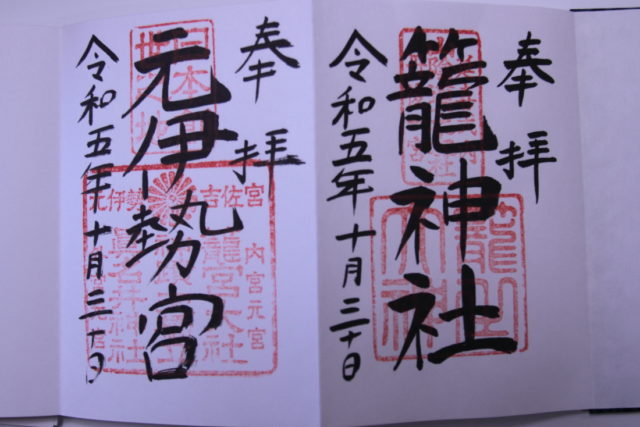 奉拝
籠神社
令和五年十月三十日
奉拝
元伊勢宮
令和五年十月三十日
元伊勢
吉佐宮
内宮元宮
龍宮大社
眞名井神社